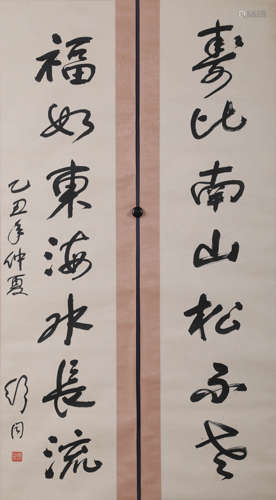 壽比南山松不老
福如東海水長流
乙丑年仲夏
舒同